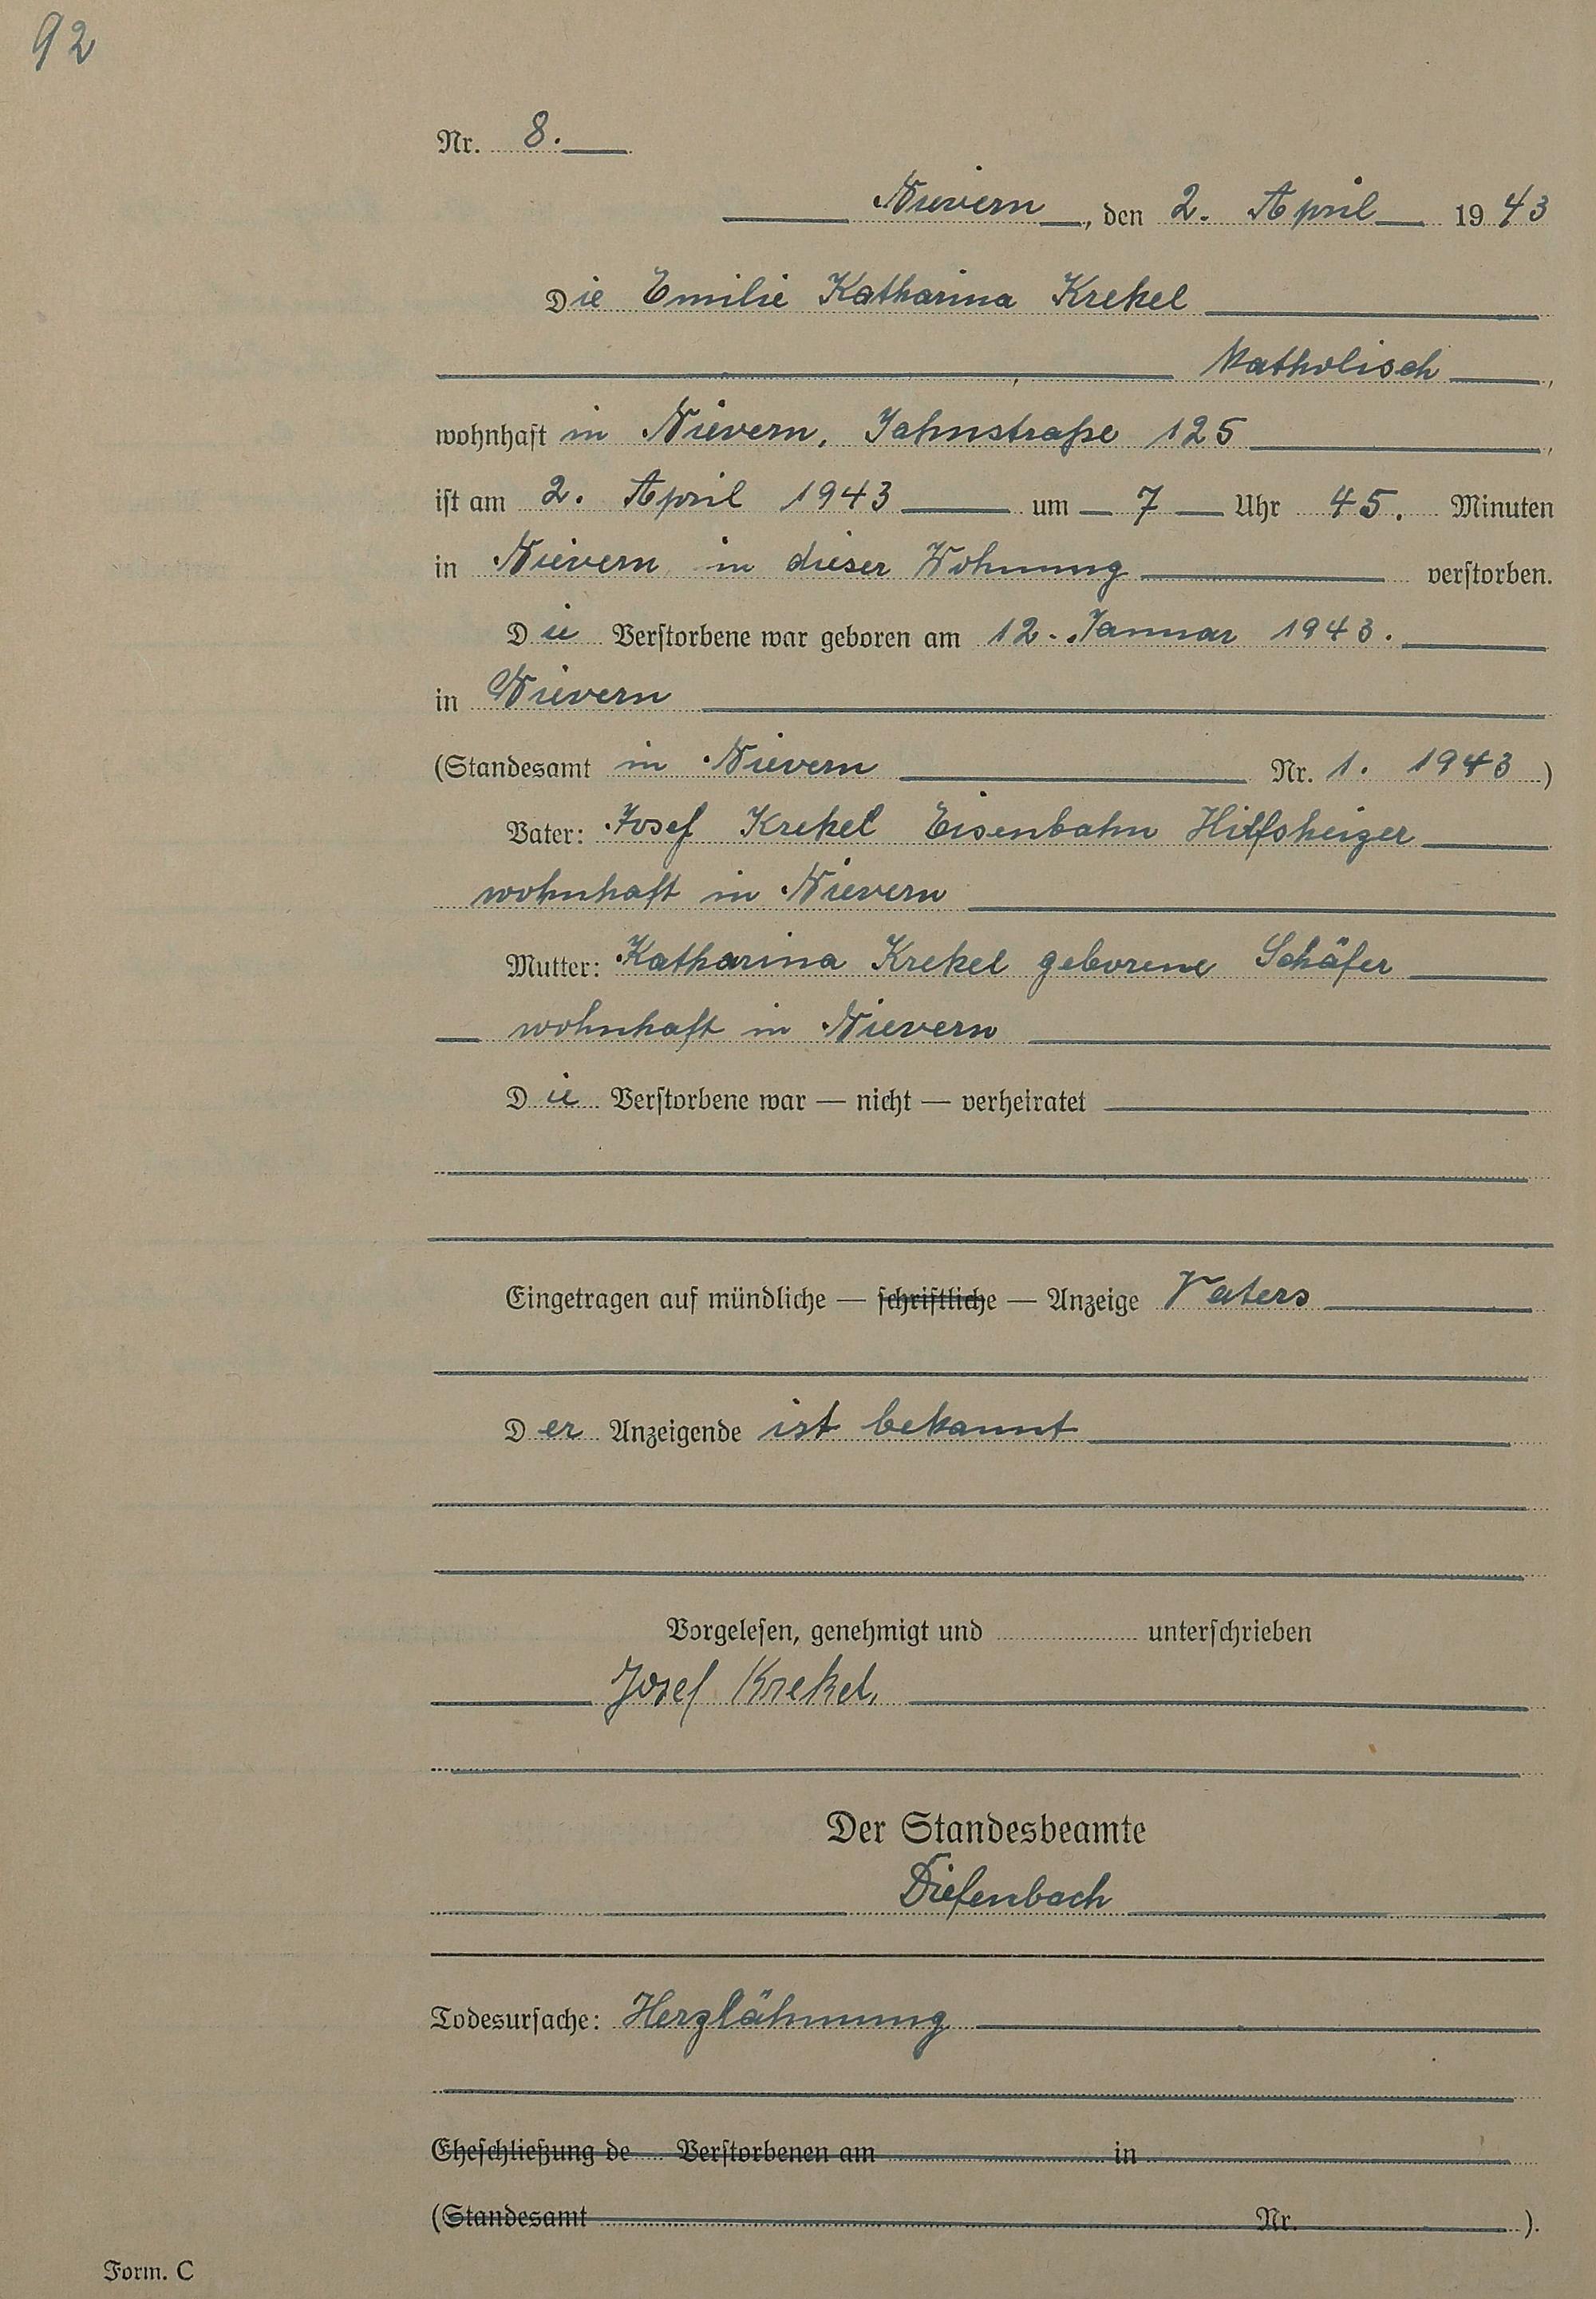 92
Nr. 8.
Nievern, den 2. April 1943
Die Emilie Katharina Krekel
katholisch,
wohnhaft in Nievern, Jahnstraße 125,
ist am 2. April 1943 um 7 Uhr 45. Minuten
in Nievern in dieser Wohnung verstorben.
Die Verstorbene war geboren am 12. Januar 1943.
in Nievern
(Standesamt in Nievern Nr. 1. 1943)
Vater: Josef Krekel Eisenbahn Hilfsheizer
wohnhaft in Nievern
Mutter: Katharina Krekel geborene Schäfer
wohnhaft in Nievern
Die Verstorbene war — nicht — verheiratet
Eingetragen auf mündliche — schriftliche — Anzeige Vaters
Der Anzeigende ist bekannt
Vorgelesen, genehmigt und unterschrieben
Josef Krekel.
Der Standesbeamte
Diefenbach
Todesursache: Herzlähmung
Eheschließung de Verstorbenen am in
(Standesamt Nr. ).
Form. C